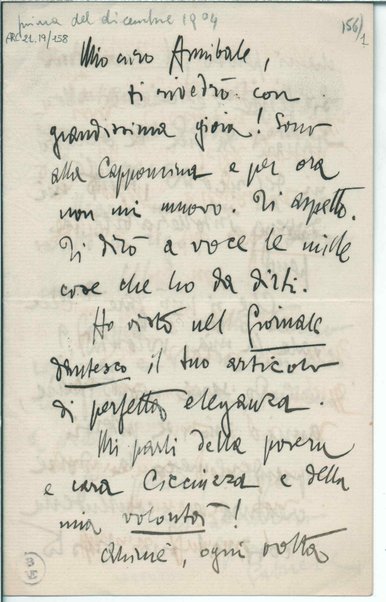 prima del dicembre 1904
156/1
ARC 21.19/158
Mio caro Annibale,
ti rivedrò con
grandissima gioia! Sono
alla Capponcina e per ora
non mi muovo. Ti aspetto.
Ti dirò a voce le mille
cose che ho da dirti.
Ho visto nel Giornale
dantesco il tuo articolo
di perfetta eleganza.
Mi parli della povera
e cara Ciccuzza e della
sua volontà!
Ahimè, ogni volta